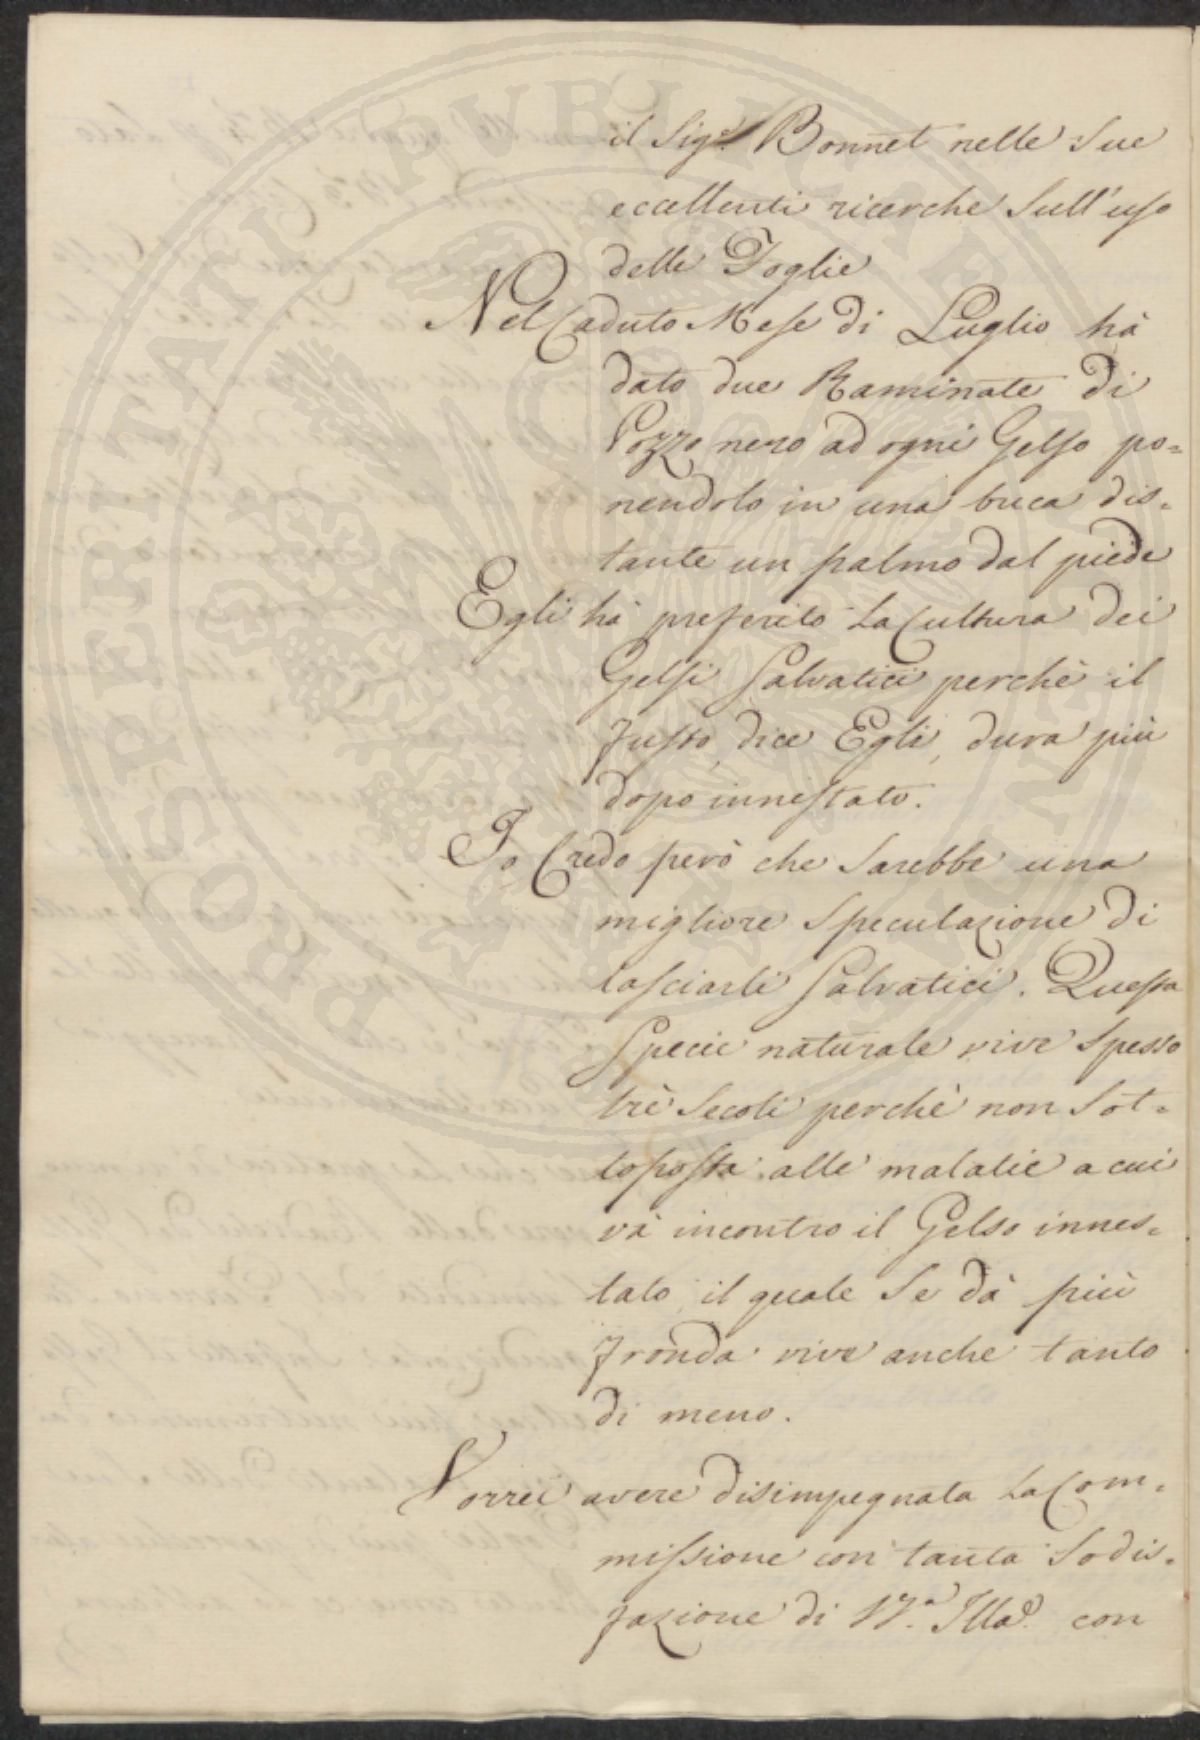 il Sig.r Bonnet nelle Sue
eccellenti ricerche Sull'uso
delle Foglie
Nel Caduto Mese di Luglio hà
dato due Raminate di
Pozzo nero ad ogni Gelso po=
nendolo in una buca dis=
tante un palmo dal piede
Egli hà preferito La Cultura dei
Gelsi Salvatici perchè il
fusto, dice Egli, dura più
dopo innestato.
Io Credo però che Sarebbe una
migliore Speculazione di
lasciarli Salvatici. Questa
Specie naturale vive Spesso
trè Secoli perchè non Sot=
toposta alle malatie a cui
và incontro il Gelso innes=
tato il quale Se dà più
fronda vive anche tanto
di meno.
Vorrei avere disimpegnata La Com=
missione con tanta Sodis=
fazione di V.a Illa. con
PROSPERITATI PUBLICAE AUGENDAE